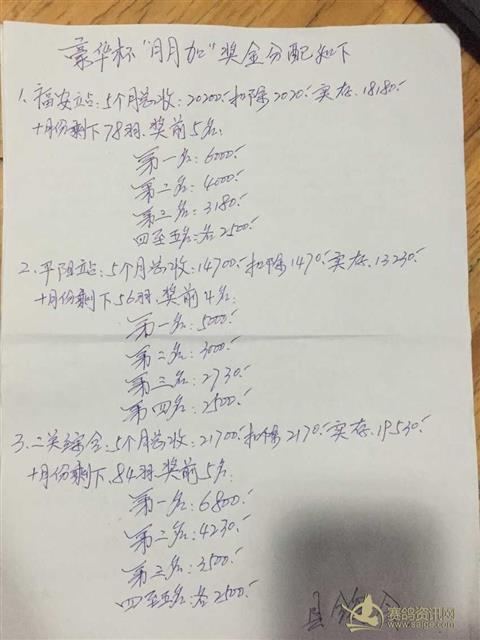 豪华杯"月月加"奖金分配如下
1.福安站:5个月总收:20200.扣除2020.实存.18180.
十月份剩下78羽.奖前5名:
第一名:6000.
第二名:4000.
第三名:3180.
四至五名:各2500.
2.平阳站:5个月总收:14700.扣除1470.实存.13230.
十月份剩下56羽.奖前4名:
第一名:5000.
第二名:3000.
第三名:2730.
第四名:2500.
3.二关综合:5个月总收:21700.扣除2170.实存.19530.
十月份剩下.84羽.奖前5名:
第一名:6800.
第二名:4230.
第三名:3500.
四至五名:各2500.
赛鸽资讯网
www.saige.com